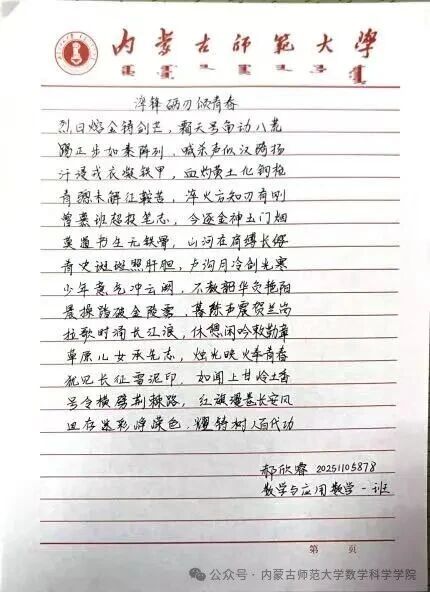 内蒙古师范大学
淬锋砺刃候青春
烈日熔金铸剑芒，霜天号角动八荒
踢正步如秦阵列，喊杀声似汉旌扬
汗浸戎衣凝铁甲，血灼黄土化钢枪
青骢未解征鞍苦，淬火方知刃有刚
曾慕班超投笔志，今逐金神玉门烟
莫道书生无铁骨，山河在肩缚长缨
青史斑斑照肝胆，卢沟月冷剑光寒
少年意气冲云阙，不教韶华负艳阳
晨操踏破金陵雪，暮练声震贺兰岗
拉歌时涌长江浪，休憩闲吟敕勒章
草原儿女承先志，烛光映火奉青春
犹见长征雪泥印，如闻上甘岭土香
号令横劈荆棘路，红旗漫卷长安风
且存迷彩峥嵘色，耀铸树人百代功
郝欣睿 20251105878
数学与应用数学一班
第 页
公众号·内蒙古师范大学数学科学学院